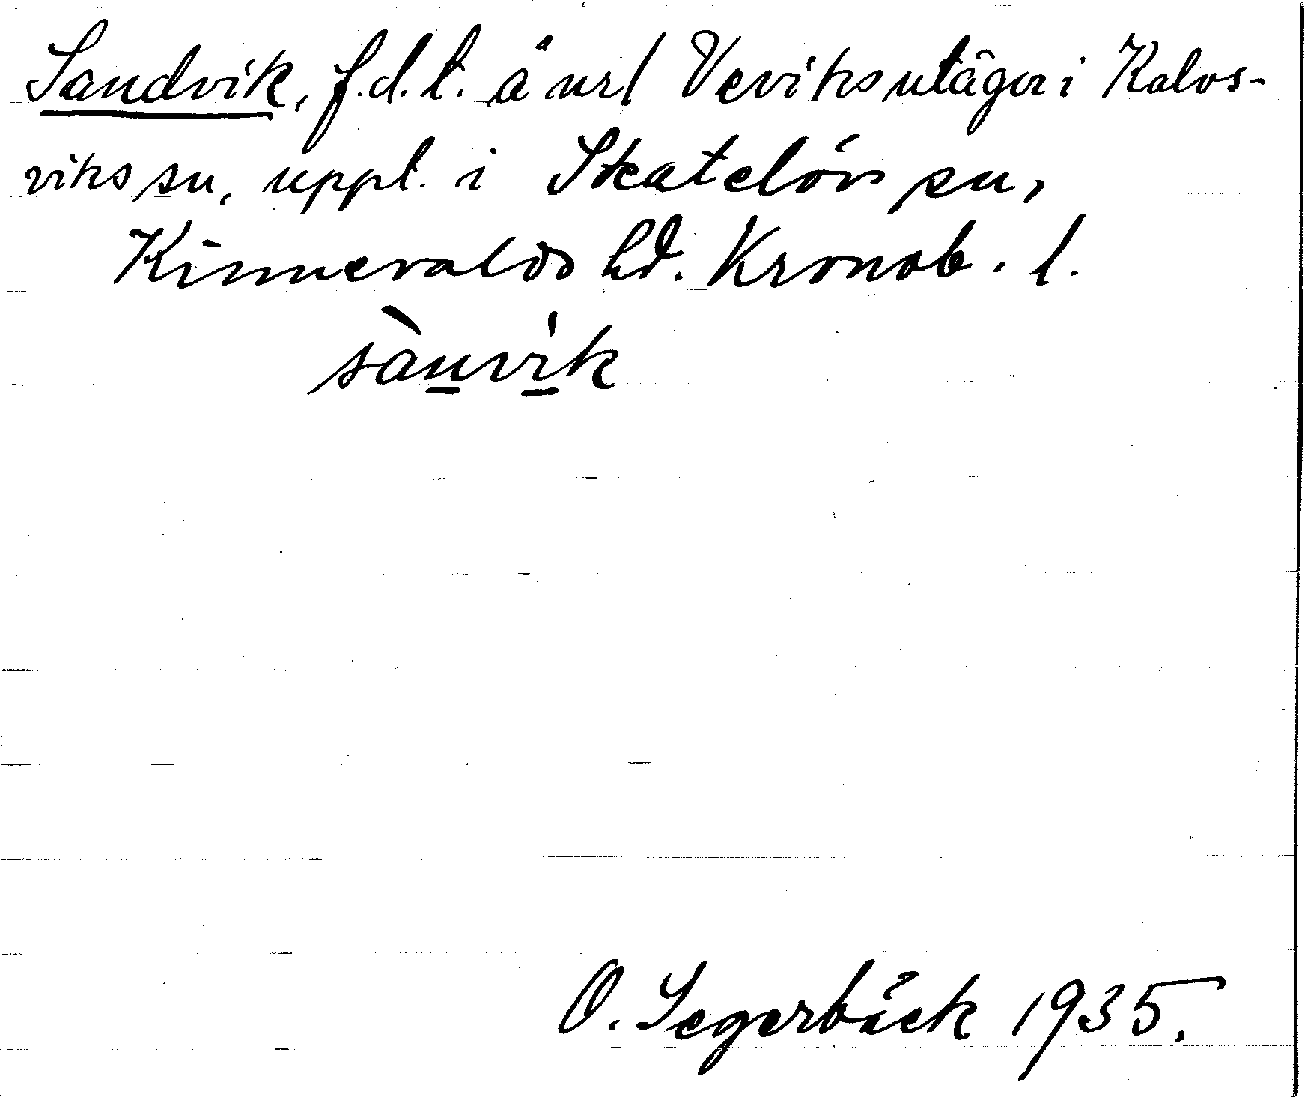 Sandvik, f.d.t. å url Veviks utägor i Kalvs-
viks sn, uppt. i Skatelövs sn,
Kinnevalds hd. Kronob. l.
sànvìk
O. Segerbäck 1935.